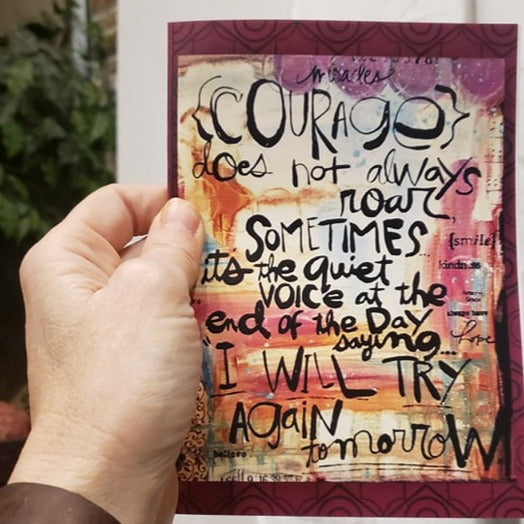 miracles
{COURAGE}
does not always
roar,
SOMETIMES...
{smile}
its the quiet
kindness
VOICE at the
end of the DAY
always have
hope
saying...
"I WILL TRY
AGAIN
tomorrow
believe